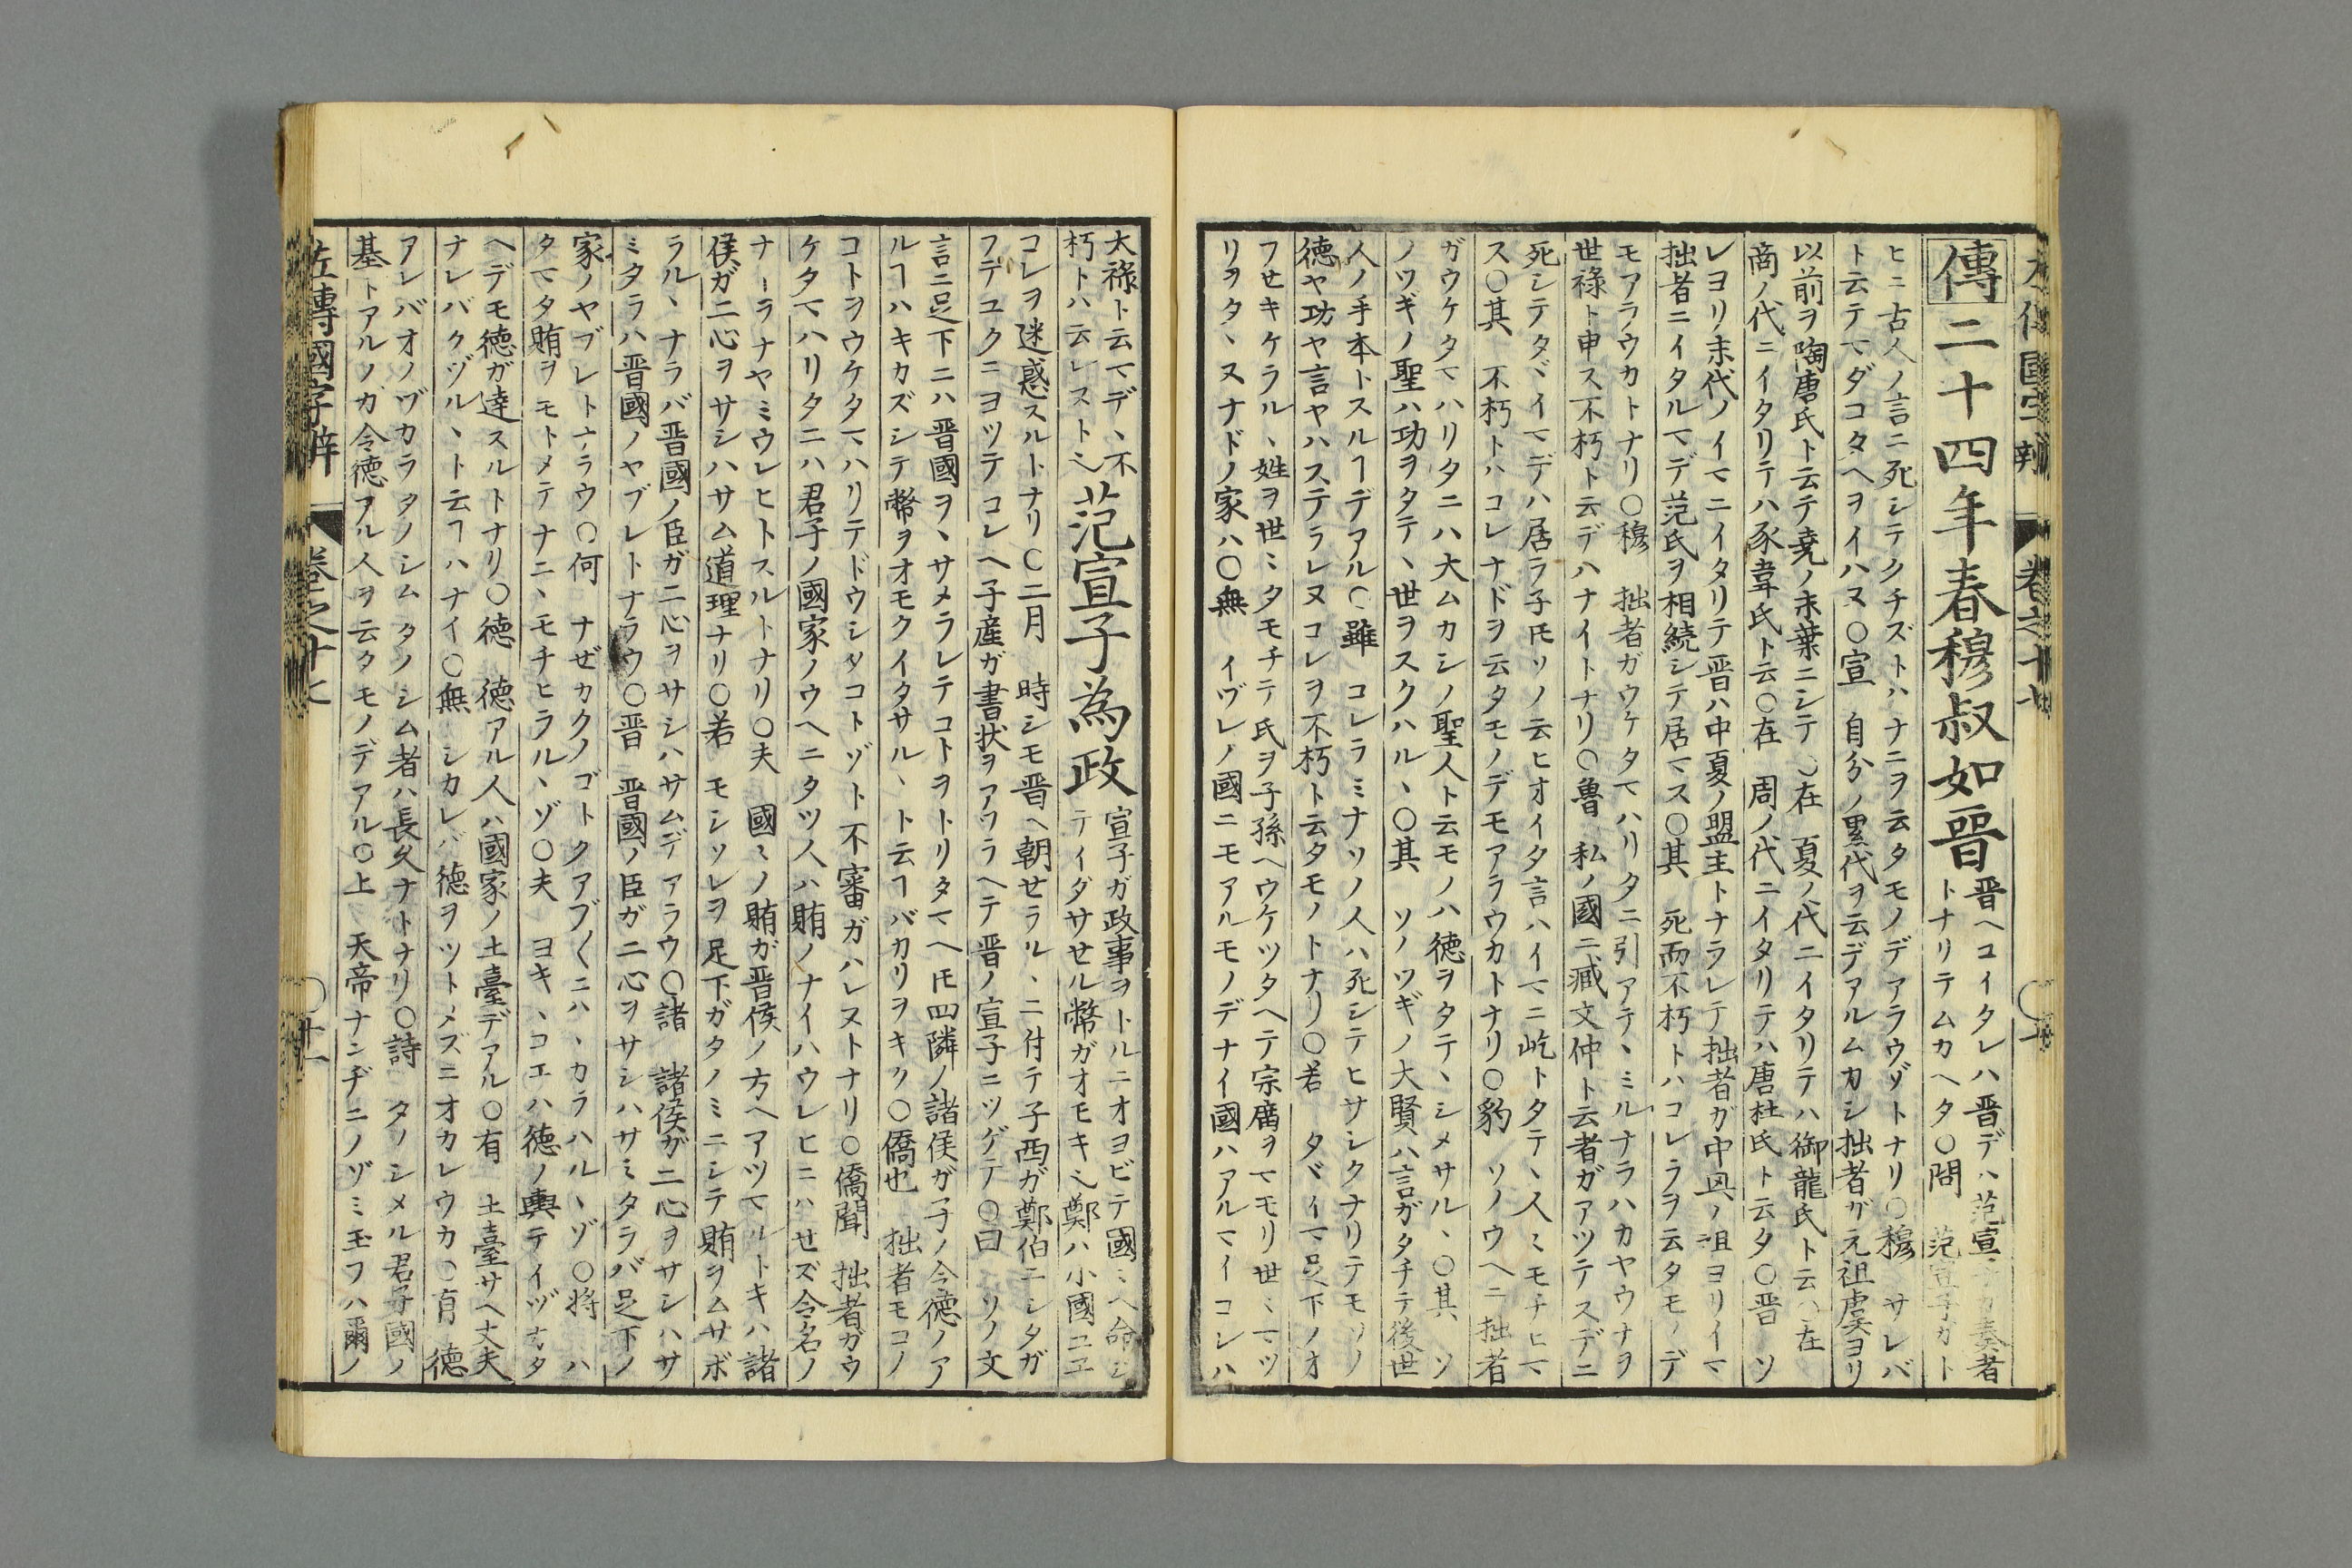 傳二十四年春穆叔如晉
晋ヘコイタレハ晋デハ范宣子カ奏者
トナリテムカヘタ〇問　范宣子ガト
ヒニ古人ノ言ニ死シテクチズトハナニヲ云タモノデアラウゾトナリ〇穆　サレバ
ト云テマダコタヘヲイハヌ〇宣　自分ノ累代ヲ云デアルムカシ拙者ガ元祖虞ヨリ
以前ヲ陶唐氏ト云テ堯ノ末葉ニシテ〇在　夏ノ代ニイタリテハ御龍氏ト云〇在
商ノ代ニイタリテハ豕韋氏ト云〇在　周ノ代ニイタリテハ唐杜氏ト云タ〇晋　ソ
レヨリ末代ノイマニイタリテ晋ハ中夏ノ盟主トナラレテ拙者ガ中興ノ祖ヨリイマ
拙者ニイタルマデ范氏ヲ相続シテ居マス〇其　死而不朽トハコレラヲ云タモノデ
モアラウカトナリ〇穆　拙者ガウケタマハリタニ引アテヽミルナラハカヤウナヲ
世禄ト申ス不朽ト云デハナイトナリ〇魯　私ノ國ニ臧文仲ト云者ガアツテスデニ
死シテタヾイマデハ居ラ子𪜈ソノ云ヒオイタ言ハイマニ屹トタテヽ人ミモチヒマ
ス〇其　不朽トハコレナドヲ云タモノデモアラウカトナリ〇豹　ソノウヘニ拙者
ガウケタマハリタニハ大ムカシノ聖人ト云モノハ徳ヲタテヽシメサルヽ〇其　ソ
ノツギノ聖ハ功ヲタテヽ世ヲスクハルヽ〇其　ソノツギノ大賢ハ言ガタチテ後世
人ノ手本トスルヿデアル〇雖　コレラミナソノ人ハ死シテヒサシクナリテモソノ
徳ヤ功ヤ言ヤハステラレヌコレヲ不朽ト云タモノトナリ〇若　タヾイマ足下ノオ
フセキケラルヽ姓ヲ世ミタモチテ氏ヲ子孫ヘウケツタヘテ宗廟ヲマモリ世ミマツ
リヲタヽヌナドノ家ハ〇無　イヅレノ國ニモアルモノデナイ國ハアルマイコレハ
大禄ト云マデヽ不
朽トハ云レストㄟ
范宣子為政
宣子ガ政事ヲトルニオヨビテ國ミヘ命シ
テイダサセル幣ガオモキㄟ鄭ハ小國ユヱ
コレヲ迷惑スルトナリ〇二月　時シモ晋ヘ朝セラルヽニ付テ子西ガ鄭伯ニシタガ
フテユクニヨツテコレヘ子産ガ書状ヲアツラヘテ晋ノ宣子ニツゲテ〇曰　ソノ文
言ニ足下ニハ晋國ヲヽサメラレテコトヲトリタマヘ𪜈四隣ノ諸侯ガ子ノ令徳ノア
ルヿハキカズシテ幣ヲオモクイタサルヽト云ヿバカリヲキク〇僑也　拙者モコノ
コトヲウケタマハリテドウシタコトゾト不審ガハレヌトナリ〇僑聞　拙者ガウ
ケタマハリタニハ君子ノ國家ノウヘニタツ人ハ賄ノナイハウレヒニハセズ令名ノ
ナーラナヤミウレヒトスルトナリ〇夫　國ミノ賄ガ晋侯ノ方ヘアツマルトキハ諸
侯ガ二心ヲサシハサム道理ナリ〇若　モシソレヲ足下ガタノミニシテ賄ヲムサボ
ラルヽナラバ晋國ノ臣ガ二心ヲサシハサムデアラウ〇諸　諸侯ガ二心ヲサシハサ
ミタラハ晋國ノヤブレトナラウ〇晋　晋國ノ臣ガ二心ヲサシハサミタラバ足下ノ
家ノヤブレトナラウ〇何　ナゼカクノゴトクアブ〱ニハヽカラハルヽゾ〇将　ハ
タマタ賄ヲモトメテナニヽモチヒラルヽゾ〇夫　ヨキヽコエハ徳ノ輿テイヅカタ
ヘデモ徳ガ達スルトナリ〇徳　徳アル人ハ國家ノ土臺デアル〇有　土臺サヘ丈夫
ナレバクヅルヽト云ヿハナイ〇無　シカレバ徳ヲツトメズニオカレウカ〇有　徳
アレバオノヅカラタノシムタノシム者ハ長久ナトナリ〇詩　タノシメル君子國ノ
基トアルノハ令徳アル人ヲ云タモノデアル〇上　天帝ナンヂニノゾミ玉フハ爾ノ
左傳國字辨　巻之十七　〇廿一